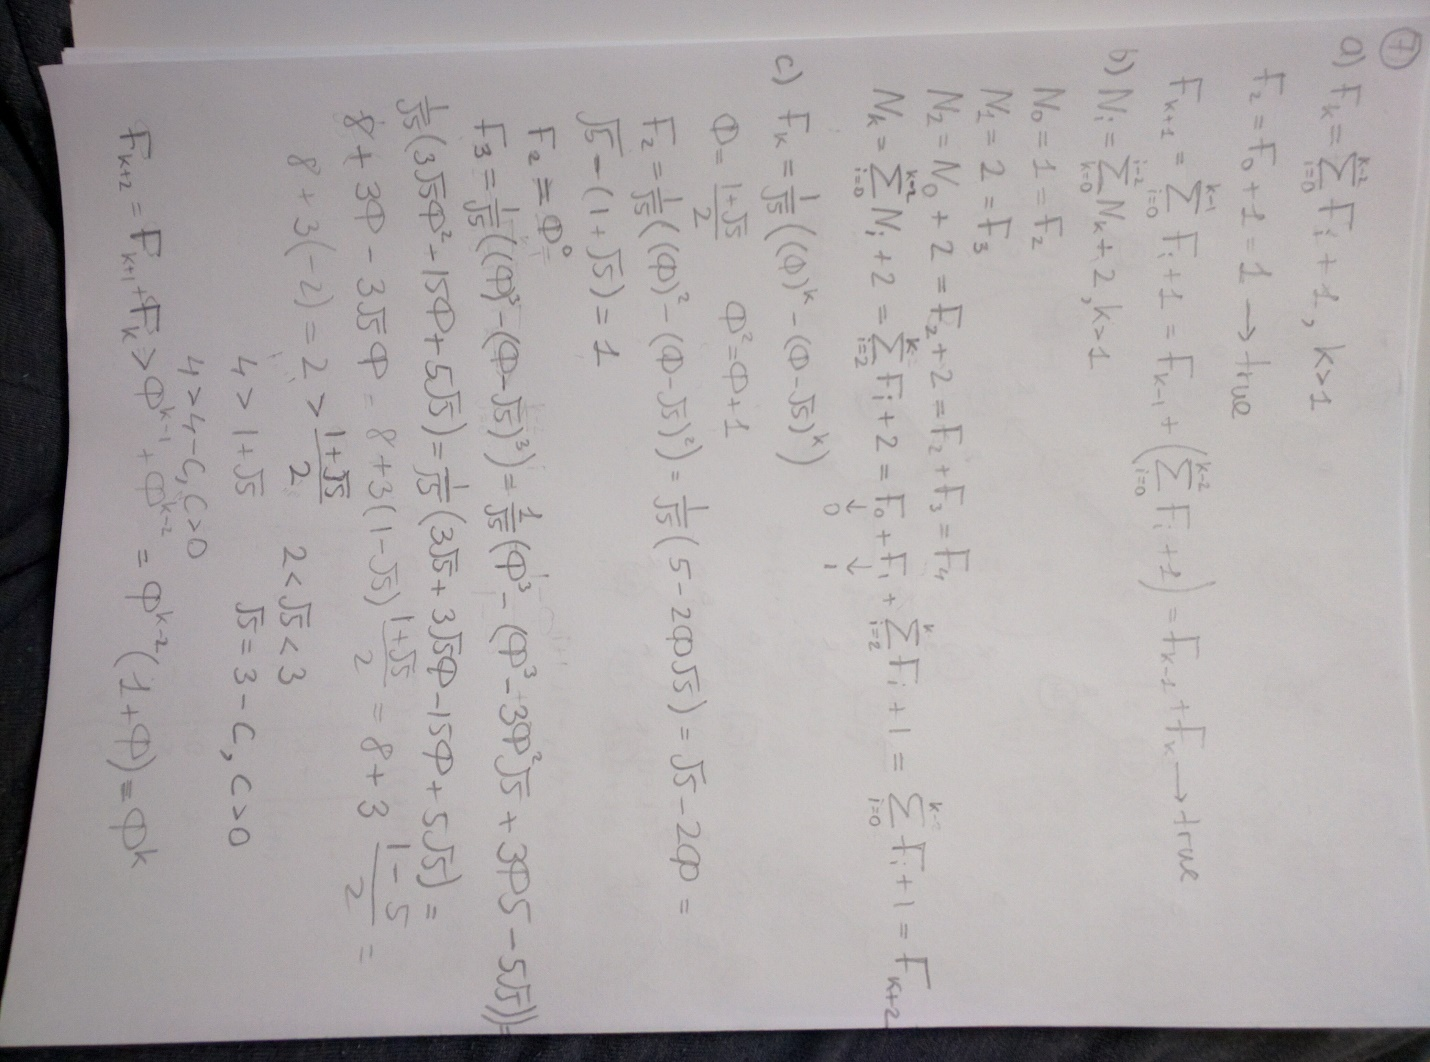 7
a) F_k = Σ_{i=0}^{k-2} F_i + 1, k>1
F_2 = F_0 + 1 = 1 → true
F_{k+1} = Σ_{i=0}^{k-1} F_i + 1 = F_{k-1} + (Σ_{i=0}^{k-2} F_i + 1) = F_{k-1} + F_k → true
b) N_i = Σ_{k=0}^{i-2} N_k + 2, k>1
N_0 = 1 = F_2
N_1 = 2 = F_3
N_2 = N_0 + 2 = F_2 + 2 = F_2 + F_3 = F_4
N_k = Σ_{i=0}^{k-2} N_i + 2 = Σ_{i=2}^{k} F_i + 2 = F_0 + F_1 + Σ_{i=2}^{k} F_i + 1 = Σ_{i=0}^{k} F_i + 1 = F_{k+2}
↓ ↓
0 1
c) F_k = 1/√5 ((Φ)^k - (Φ-√5)^k)
Φ = (1+√5)/2 Φ² = Φ + 1
F_2 = 1/√5 ((Φ)² - (Φ-√5)²) = 1/√5 (5 - 2Φ√5) = √5 - 2Φ =
√5 - (1+√5) = 1
F_2 = Φ⁰ =
F_3 = 1/√5 ((Φ)³ - (Φ-√5)³) = 1/√5 (Φ³ - (Φ³ - 3Φ²√5 + 3Φ5 - 5√5)) =
1/√5 (3√5Φ² + 15Φ + 5√5) = 1/√5 (3√5 + 3√5Φ - 15Φ + 5√5) =
8 + 3Φ - 3√5Φ = 8 + 3(1-√5) (1+√5)/2 = 8 + 3 (1-5)/2 =
8 + 3(-2) = 2 > (1+√5)/2 2 < √5 < 3
4 > 1+√5 √5 = 3 - C, C>0
4 > 4 - C, C>0
F_{k+2} = F_{k+1} + F_k > Φ^{k-1} + Φ^{k-2} = Φ^{k-2}(1+Φ) = Φ^k